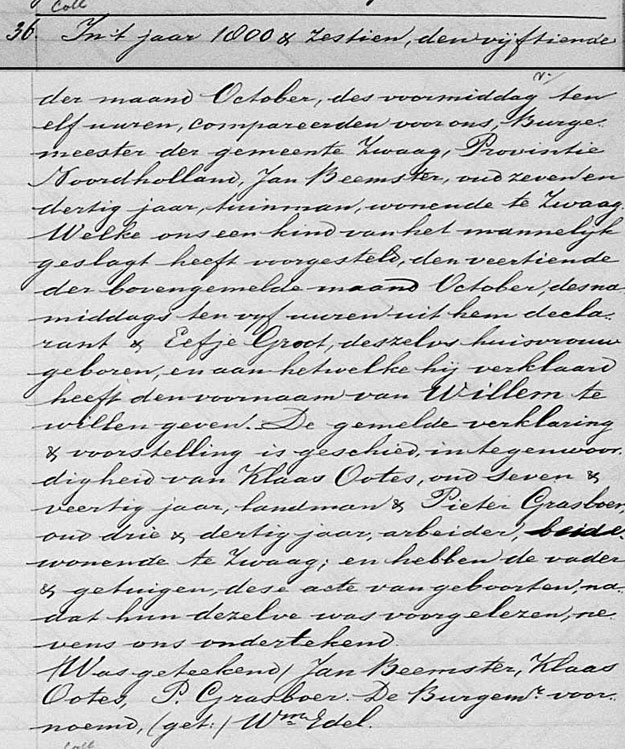 Coll
36. In 't jaar 1800 & zestien, den vijftiende
der maand October, des voormiddag ten
elf uuren, compareerden voor ons, Burge-
meester der gemeente Zwaag, Provintie
Noordholland, Jan Beemster, oud zeven en
dertig jaar, tuinman, wonende te Zwaag.
Welke ons een kind van het mannelijk
geslagt heeft voorgesteld, den veertiende
der bovengemelde maand October, des na-
middags ten vyf uuren uit hem decla-
rant & Eefje Groot, deszelvs huisvrouw
geboren, en aan hetwelke hij verklaard
heeft den voornaam van Willem te
willen geven. De gemelde verklaring
& voorstelling is geschied, in tegenwoor-
digheid van Klaas Ootes, oud seven &
veertig jaar, landman & Pieter Grasboer,
oud drie & dertig jaar, arbeider, beide
wonende te Zwaag; en hebben de vader
& getuigen, dese acte van geboorten, na-
dat hun dezelve was voorgelezen, ne-
vens ons ondertekend.
(Was geteekend) Jan Beemster, Klaas
Ootes, P. Grasboer. De Burgemr. voor-
noemd, (get:) Wm Edel.
Coll